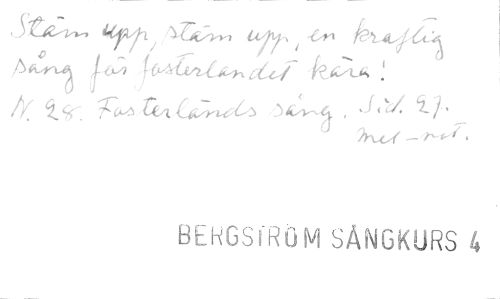 Stäm upp, stäm upp, en kraftig
sång för fosterlandet kära!
N. 28. Fosterlands sång. Sid. 27.
mel-not.
BERGSTRÖM SÅNGKURS 4